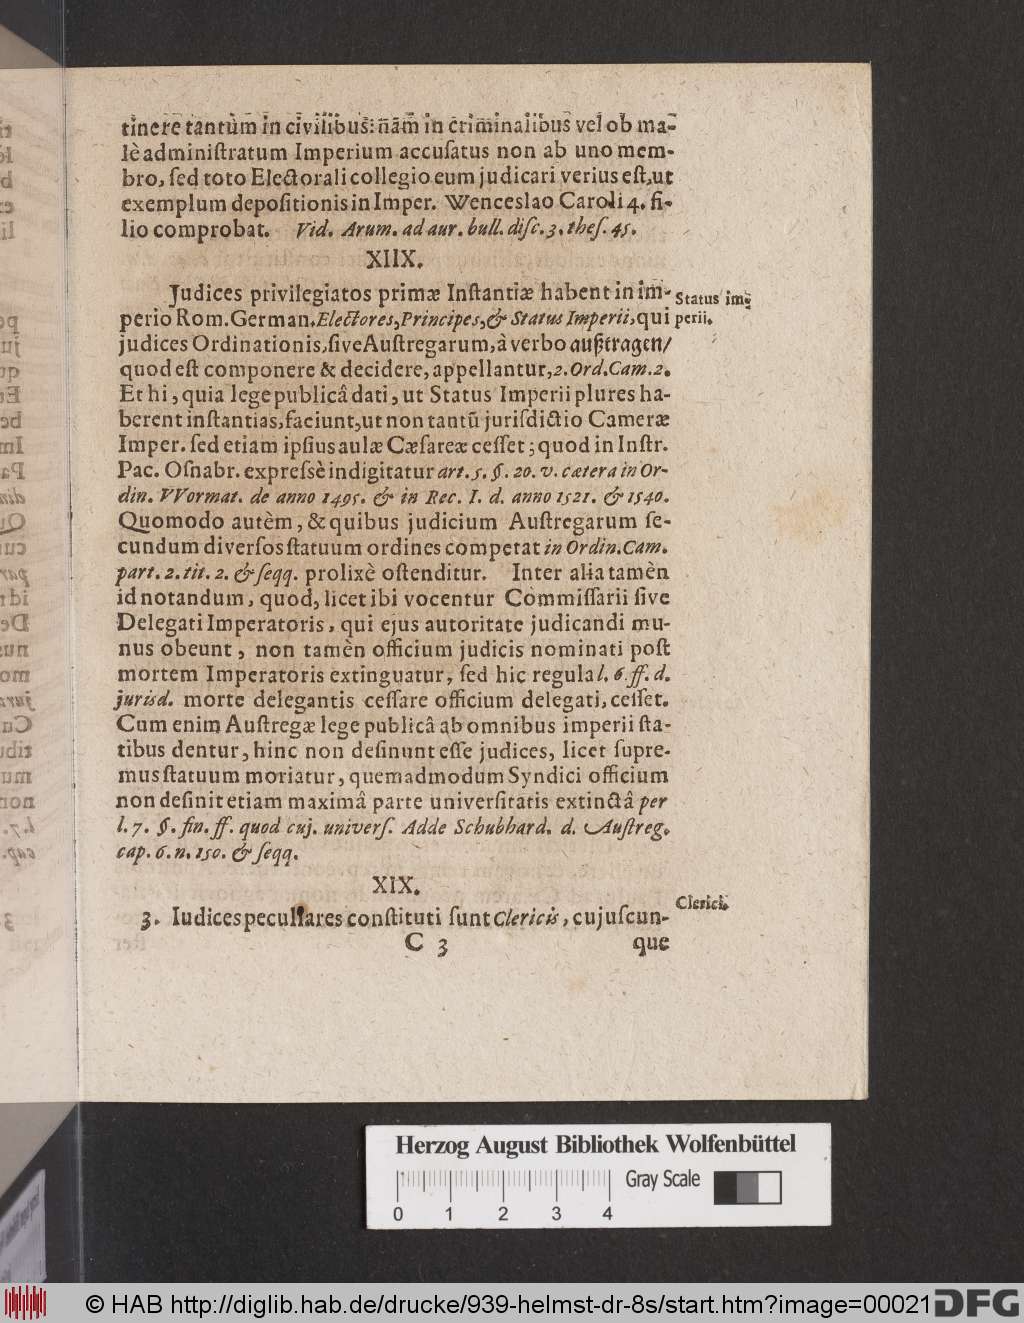 tinere tantùm in civilibus: nam in criminalibus vel ob ma-
lè administratum Imperium accusatus non ab uno mem-
bro, sed toto Electorali collegio eum judicari verius est, ut
exemplum depositionis in Imper. Wenceslao Caroli 4. fi-
lio comprobat. Vid. Arum. ad aur. bull. disc. 3. thes. 45.
XIIX.
Judices privilegiatos primæ Instantiæ habent in im-
perio Rom. German. Electores, Principes, & Status Imperii, qui
Status im-
perii.
judices Ordinationis, sive Austregarum, à verbo außtragen/
quod est componere & decidere, appellantur, 2. Ord. Cam. 2.
Et hi, quia lege publicâ dati, ut Status Imperii plures ha-
berent instantias, faciunt, ut non tantũ jurisdictio Cameræ
Imper. sed etiam ipsius aulæ Cæsareæ cesset; quod in Instr.
Pac. Osnabr. expressè indigitatur art. 5. §. 20. v. cætera in Or-
din. VVormat. de anno 1495. & in Rec. I. d. anno 1521. & 1540.
Quomodo autèm, & quibus judicium Austregarum se-
cundum diversos statuum ordines competat in Ordin. Cam.
part. 2. tit. 2. & seqq. prolixè ostenditur. Inter alia tamèn
id notandum, quod, licet ibi vocentur Commissarii sive
Delegati Imperatoris, qui ejus autoritate judicandi mu-
nus obeunt, non tamèn officium judicis nominati post
mortem Imperatoris extinguatur, sed hic regula l. 6. ff. d.
jurisd. morte delegantis cessare officium delegati, cesset.
Cum enim Austregæ lege publicâ ab omnibus imperii sta-
tibus dentur, hinc non desinunt esse judices, licet supre-
mus statuum moriatur, quemadmodum Syndici officium
non desinit etiam maximâ parte universitatis extinctâ per
l. 7. §. fin. ff. quod cuj. univers. Adde Schubhard. d. Austreg.
cap. 6. n. 150. & seqq.
XIX.
3. Iudices peculiares constituti sunt Clericis, cujuscun-
Clerici.
C 3 que
Herzog August Bibliothek Wolfenbüttel
Gray Scale
0 1 2 3 4
© HAB http://diglib.hab.de/drucke/939-helmst-dr-8s/start.htm?image=00021
DFG